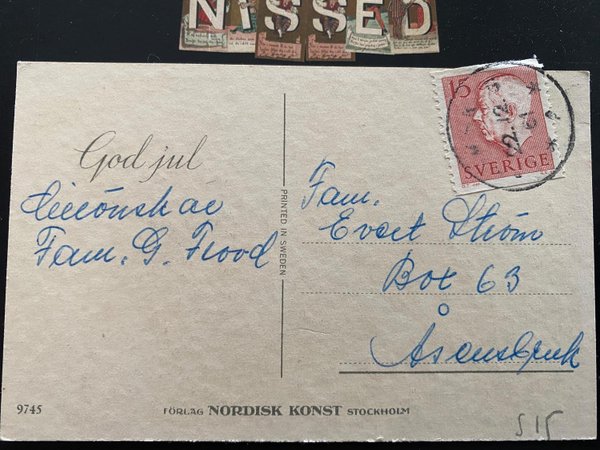 NISSED
God jul
Tillönskar
Fam. G. Frood
PRINTED IN SWEDEN
15
SVERIGE
22.12.61
Fam.
Evert Ström
Box 63
Åsensbruk
9745
FÖRLAG NORDISK KONST STOCKHOLM
S 15